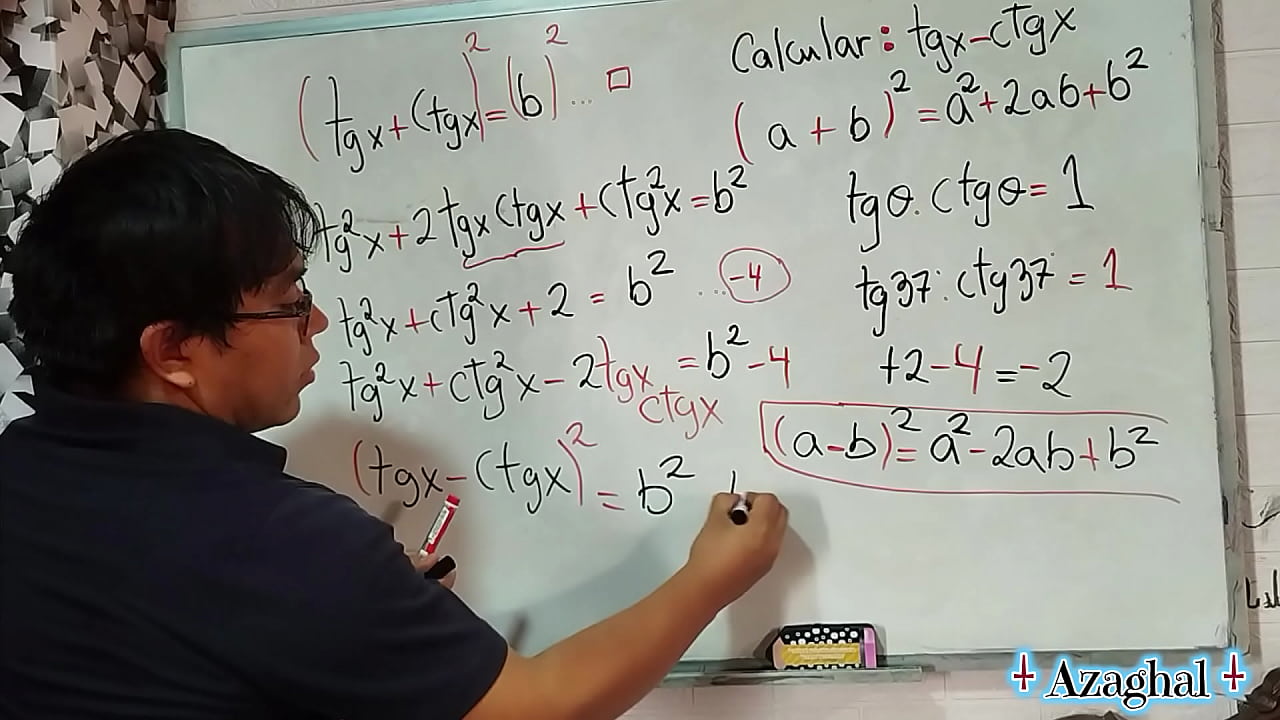 (tgx+Ctgx)²=(b)² ... □
tg²x+2tgxCtgx+Ctg²x=b²
tg²x+Ctg²x+2 = b² ... -4
tg²x+Ctg²x-2tgx Ctgx =b²-4
(tgx-Ctgx)² = b²
Calcular: tgx-Ctgx
(a+b)²=a²+2ab+b²
tgθ.Ctgθ=1
tg37.Ctg37=1
+2-4=-2
(a-b)²=a²-2ab+b²
Azaghal